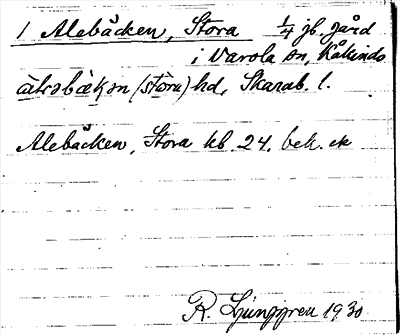 1 Alebäcken, Stora 1/4 jb. gård
i Varola sn, Kåkinds
(stòra) hd, Skarab. l.
Alebäcken, Stora kb. 24. bek. ek
R. Ljunggren 1930